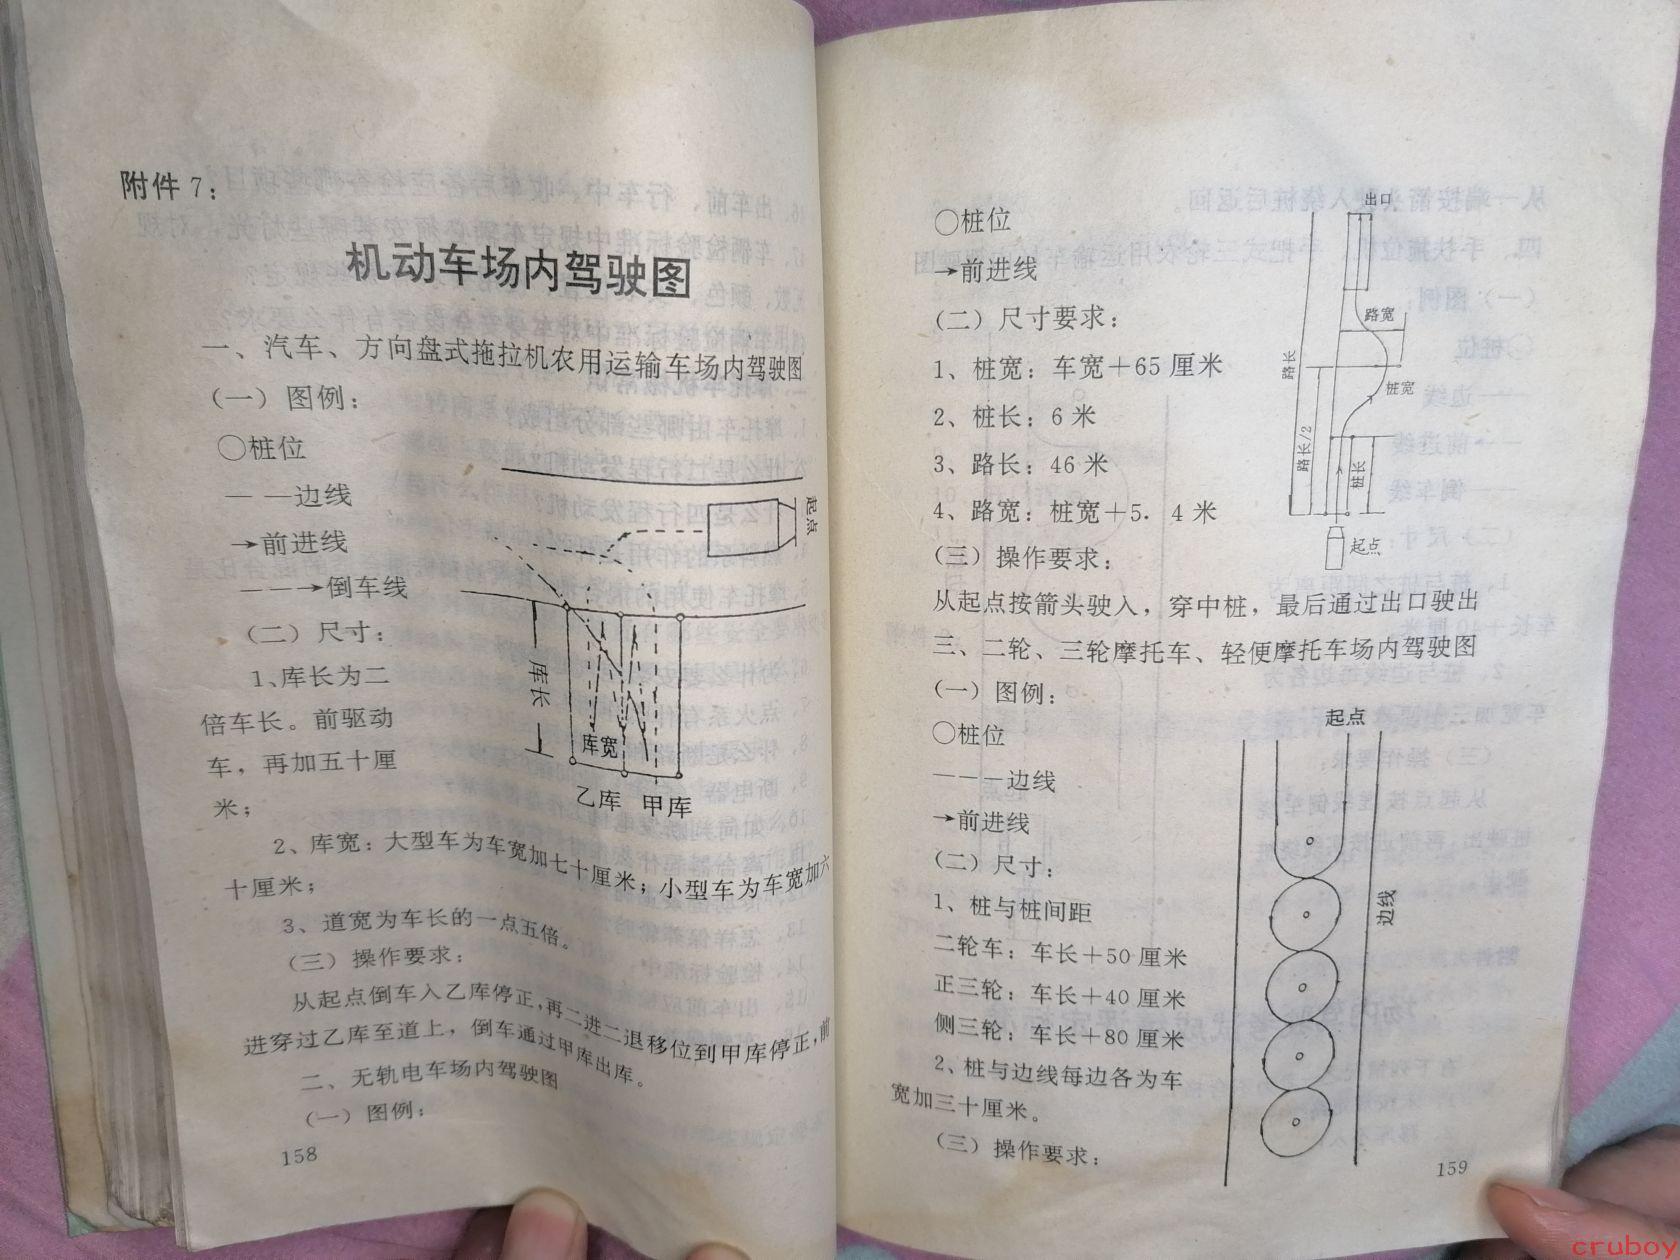 附件7：
机动车场内驾驶图
一、汽车、方向盘式拖拉机农用运输车场内驾驶图
（一）图例：
○桩位
－－边线
→前进线
－－→倒车线
（二）尺寸：
1、库长为二
倍车长。前驱动
车，再加五十厘
米；
起点
库长
库宽
乙库 甲库
2、库宽：大型车为车宽加七十厘米；小型车为车宽加六
十厘米；
3、道宽为车长的一点五倍。
（三）操作要求：
从起点倒车入乙库停正，再二进二退移位到甲库停正，前
进穿过乙库至道上，倒车通过甲库出库。
二、无轨电车场内驾驶图
（一）图例：
158
○桩位
→前进线
（二）尺寸要求：
1、桩宽：车宽＋65厘米
2、桩长：6米
3、路长：46米
4、路宽：桩宽＋5．4米
（三）操作要求：
出口
路宽
路长
桩宽
路长/2
桩长
起点
从起点按箭头驶入，穿中桩，最后通过出口驶出
三、二轮、三轮摩托车、轻便摩托车场内驾驶图
（一）图例：
○桩位
－－－边线
→前进线
（二）尺寸：
1、桩与桩间距
二轮车：车长＋50厘米
正三轮：车长＋40厘米
侧三轮：车长＋80厘米
2、桩与边线每边各为车
宽加三十厘米。
（三）操作要求：
起点
边线
159
cruboy